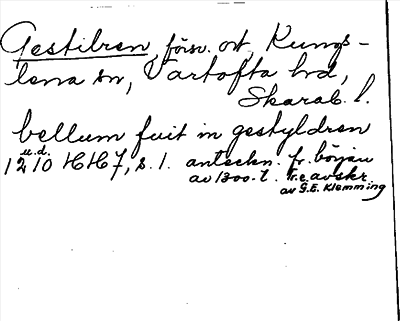 Gestilren, försv. ort, Kungs-
lena sn, Vartofta hd,
Skarab. l.
bellum fuit in gestyldren
u. d.
1210 HH 7, s. 1. anteckn. fr. början
av 1300-t. t.e. avskr.
av G.E. Klemming